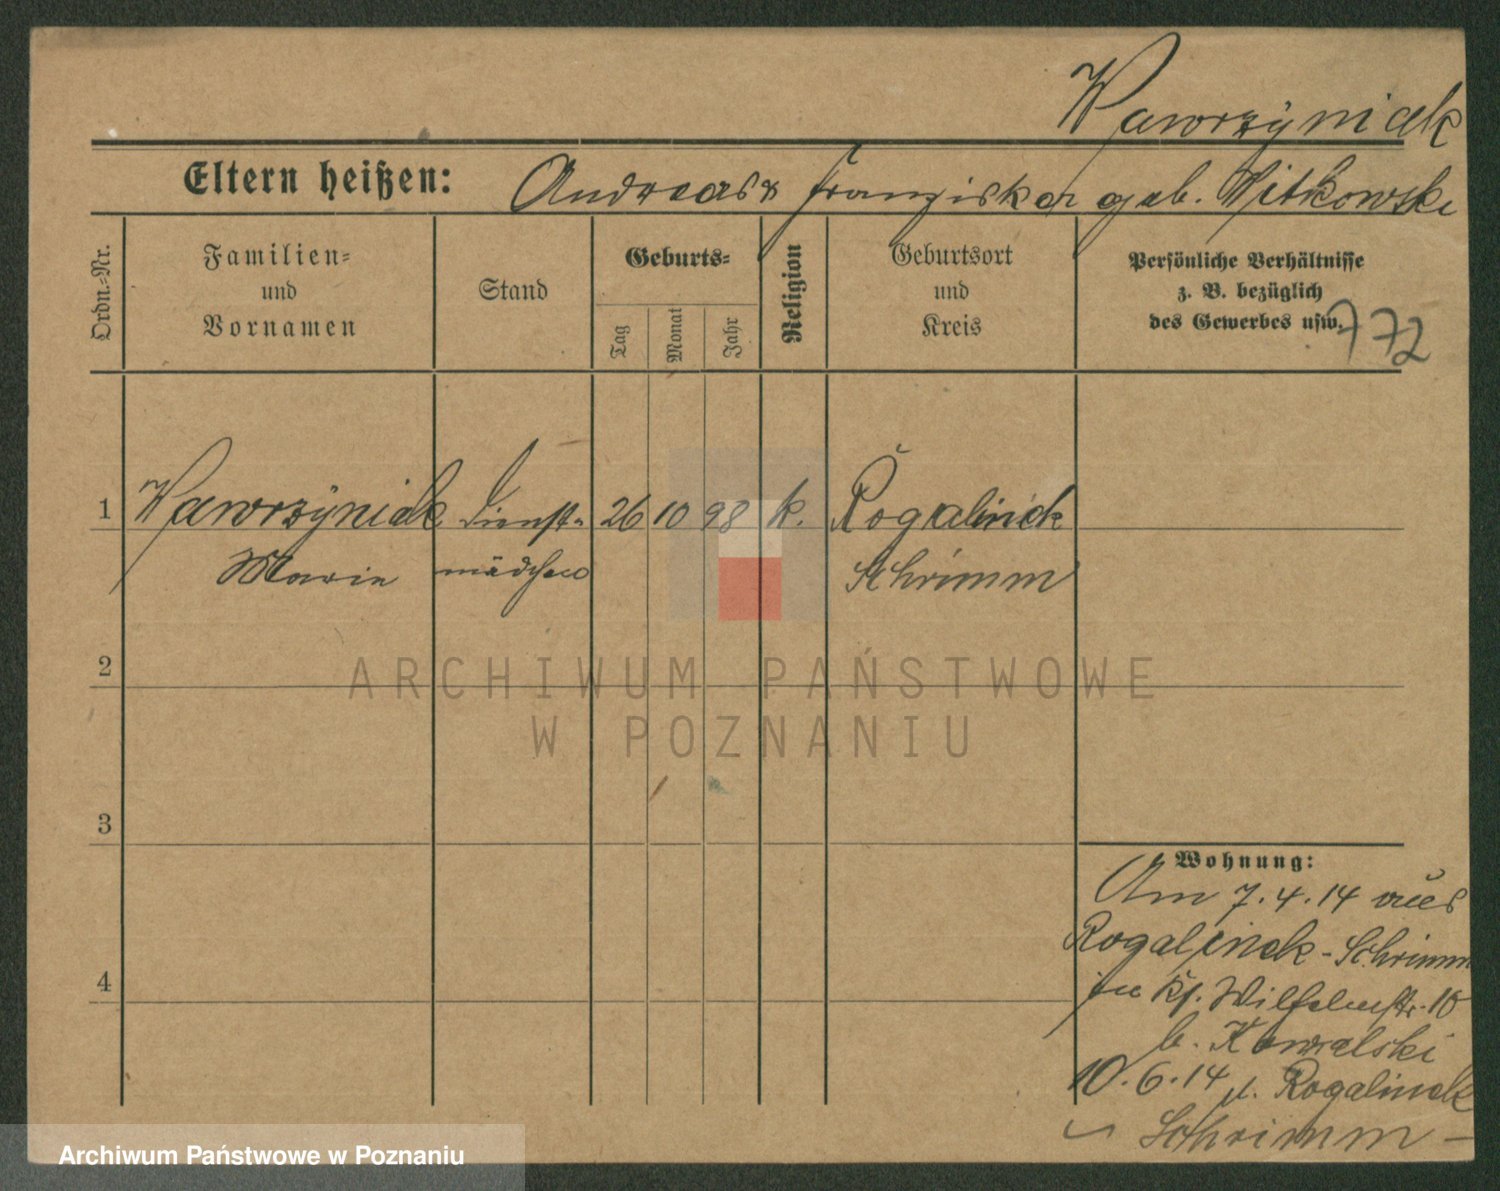 Wawrzyniak
Eltern heißen: Andreas & Franziska geb. Witkowski
Ordn.-Nr.
Familien-
und
Vornamen
Stand
Geburts-
Tag
Monat
Jahr
Religion
Geburtsort
und
Kreis
Persönliche Verhältnisse
z. B. bezüglich
des Gewerbes usw.
772
1 Wawrzyniak Dienst- 26 10 98 k. Rogalinek
Marie mädchen Schrimm
2
ARCHIWUM PAŃSTWOWE
W POZNANIU
3
Wohnung:
Am 7.4.14 aus
Rogalinek-Schrimm
in Wilhelmstr. 10
b. Kowalski
4
10.6.14 n. Rogalinek
Schrimm
Archiwum Państwowe w Poznaniu